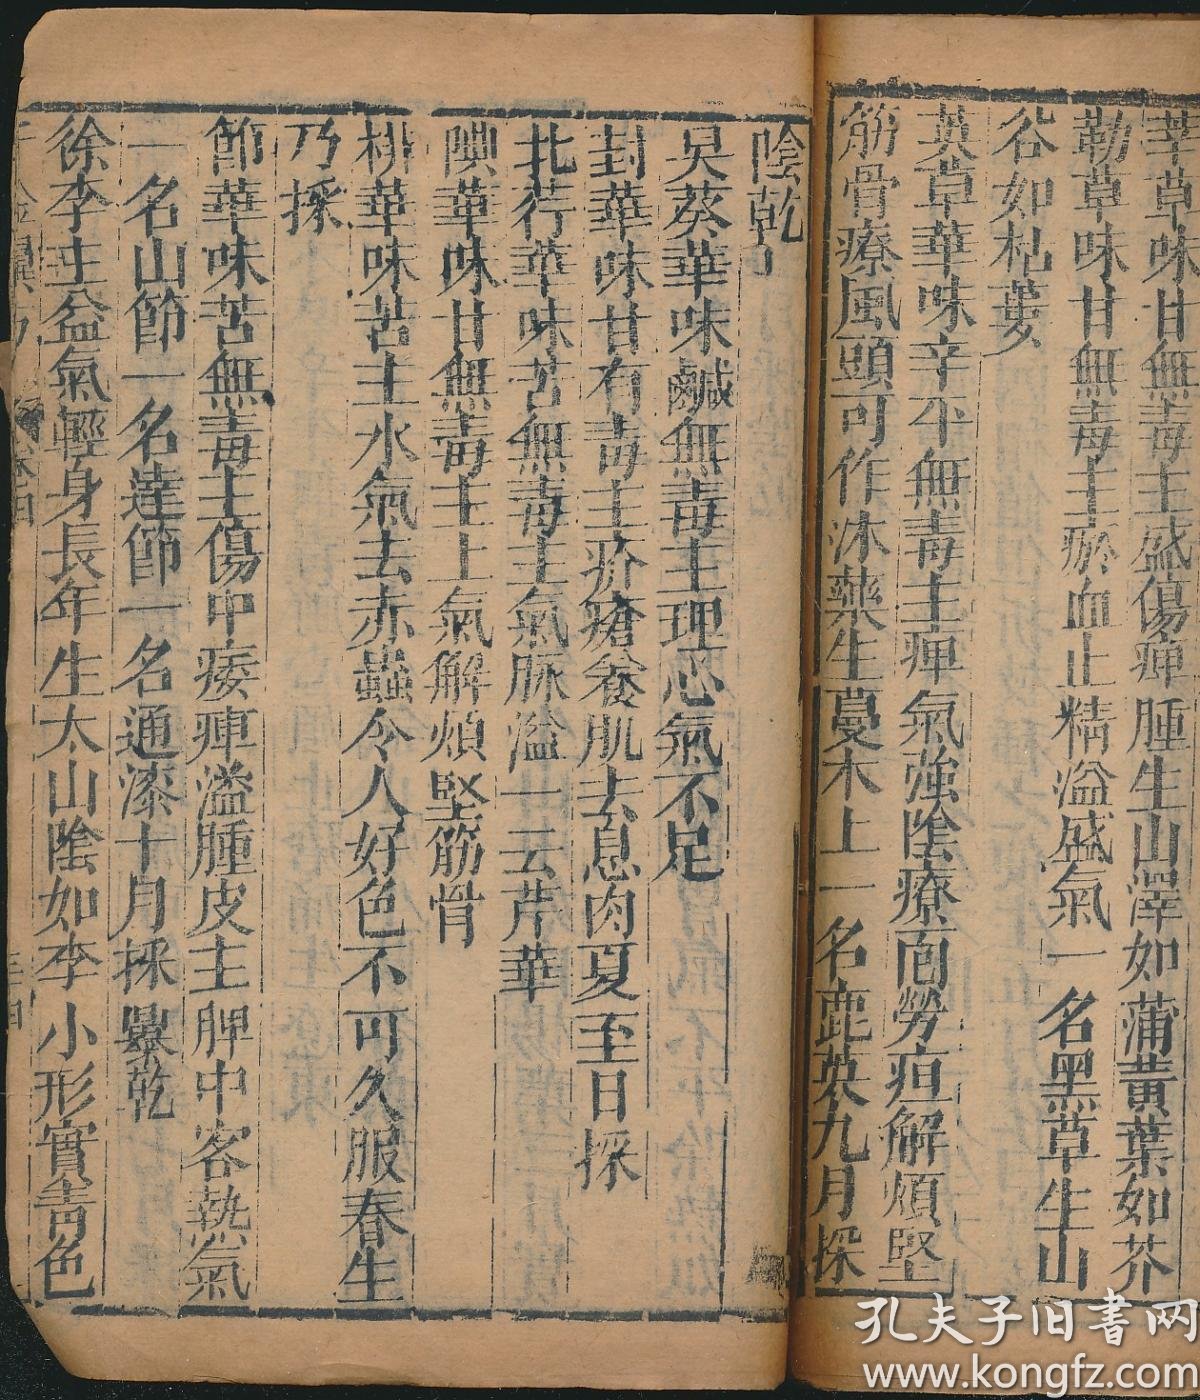 莘草味甘無毒主盛傷痺腫生山澤如蒲黃葉如芥
勒草味甘無毒主瘀血止精溢盛氣一名黑草生山
谷如栝蔞
英草華味辛平無毒主痺氣強陰療面勞疸解煩堅
筋骨療風頭可作沐藥生蔓木上一名鹿英九月採
陰乾
吳葵華味鹹無毒主理惡氣不足
封華味甘有毒主疥瘡養肌去息肉夏至日採
北荇華味苦無毒主氣脉溢一云芹華
腆華味甘無毒主上氣解煩堅筋骨
排華味苦主水氣去赤蟲令人好色不可久服春生
乃採
節華味苦無毒主傷中痿痺溢腫皮主脾中客熱氣
一名山節一名達節一名通漆十月採暴乾
徐李主益氣輕身長年生太山陰如李小形實青色
孔夫子旧书网
www.kongfz.com